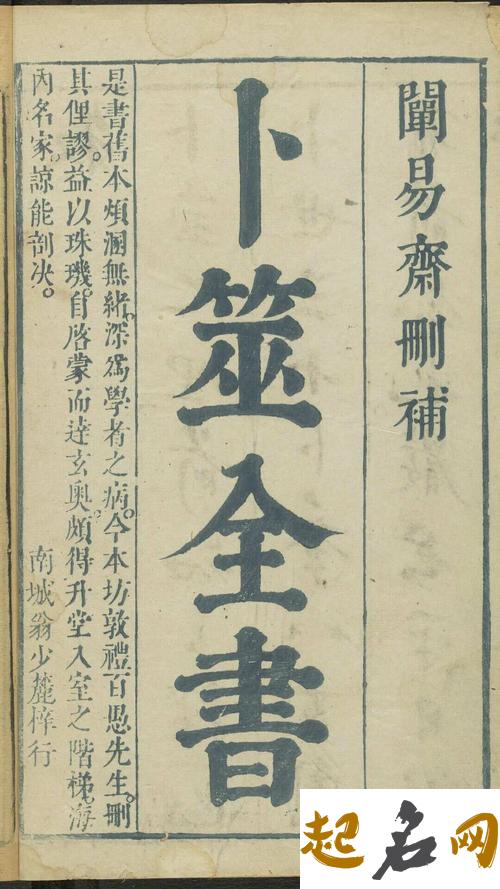 闡易齋刪補
卜筮全書
是書舊本煩溷無緒。深爲學者之病。今本坊敦禮百愚先生。刪
其俚謬。益以珠璣。自啓蒙而逹玄奥。頗得升堂入室之階梯。海
內名家。諒能剖决。
南城翁少麓梓行
起名网